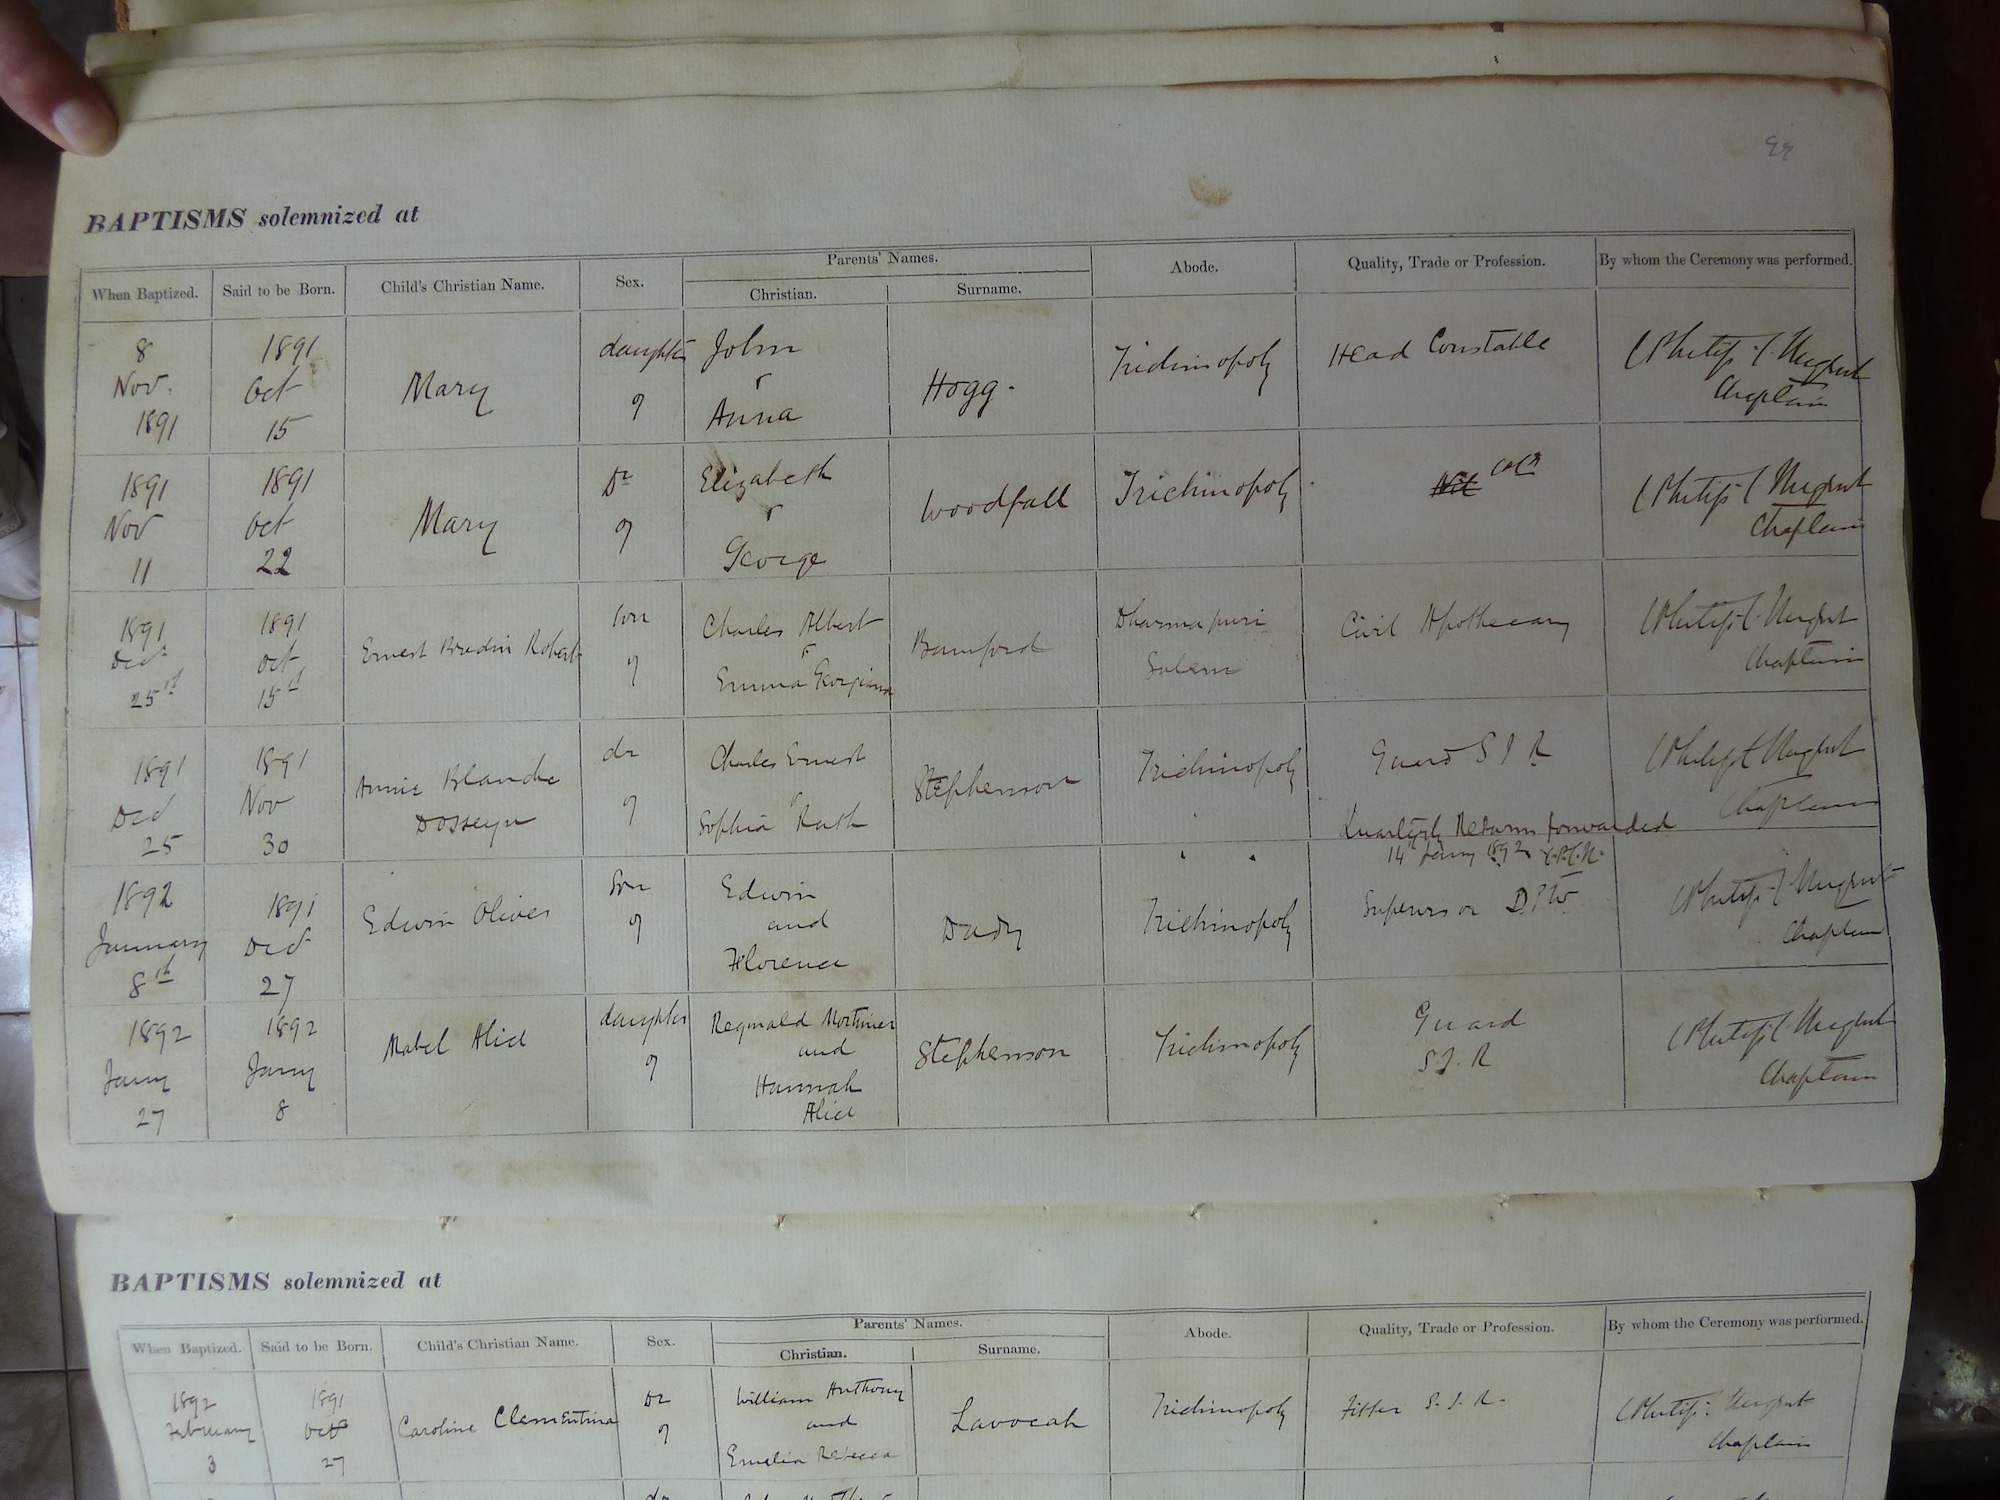 BAPTISMS solemnized at
When Baptized. Said to be Born. Child's Christian Name. Sex. Parents' Names. Abode. Quality, Trade or Profession. By whom the Ceremony was performed.
Christian. Surname.
8 1891 daughter John Trichinopoly Head Constable
Nov. Oct Mary of Hogg. Chaplain
1891 15 Anna
1891 1891 Dr Elizabeth Trichinopoly
Nov Oct Mary of Woodfall Chaplain
11 22 George
1891 1891 son Charles Albert Dharmapuri Civil Apothecary
Decr Oct Ernest Bredin Robert of Bamford Salem Chaplain
25th 15th Emma Georgiana
1891 1891 dr Charles Ernest Trichinopoly Guard S I R
Decr Nov Annie Blanche of Stephenson Chaplain
25 30 Sophia Ruth
Quarterly Returns forwarded
14th Jany 1892
1892 1891 Son Edwin Supervisor DPW
January Decr Edwin Oliver of and Dady Trichinopoly Chaplain
8th 27 Florence
1892 1892 daughter Reginald Mortimer Guard
Jany Jany Mabel Alice of and Stephenson Trichinopoly S.I.R Chaplain
27 8 Hannah
Alice
BAPTISMS solemnized at
When Baptized. Said to be Born. Child's Christian Name. Sex. Parents' Names. Abode. Quality, Trade or Profession. By whom the Ceremony was performed.
Christian. Surname.
1892 1891 Dr William Anthony Trichinopoly Fitter S.I.R.
February Oct Caroline Clementina of and Chaplain
3 27 Emelia Rebecca